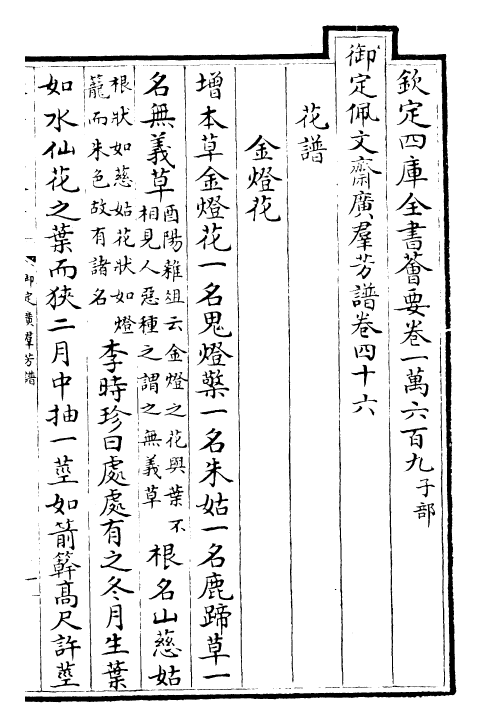 欽定四庫全書薈要卷一萬六百九子部
御定佩文齋廣羣芳譜卷四十六
花譜
金燈花
增本草金燈花一名鬼燈檠一名朱姑一名鹿蹄草一
名無義草酉陽雜俎云金燈之花與葉不
相見人惡種之謂之無義草根名山慈姑
根狀如慈姑花狀如燈
籠而朱色故有諸名李時珍曰處處有之冬月生葉
如水仙花之葉而狹二月中抽一莖如箭簳高尺許莖
御定廣羣芳譜
一